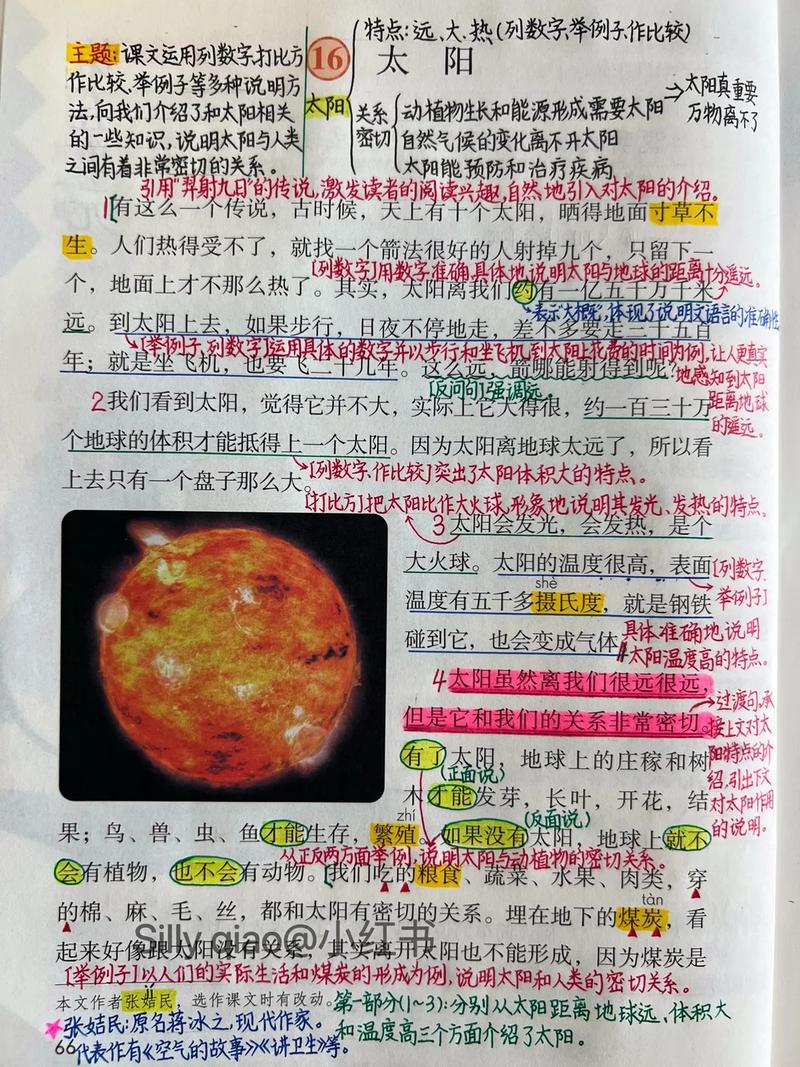 特点：远、大、热（列数字、举例子、作比较）
主题：课文运用列数字、打比方
作比较、举例子等多种说明方
法，向我们介绍了和太阳相关
的一些知识，说明太阳与人类
之间有着非常密切的关系。
16 太阳
太阳
关系
密切
动植物生长和能源形成需要太阳
自然气候的变化离不开太阳
太阳能预防和治疗疾病
太阳真重要
万物离不了
引用“羿射九日”的传说，激发读者的阅读兴趣，自然地引入对太阳的介绍。
1 有这么一个传说，古时候，天上有十个太阳，晒得地面寸草不
生。人们热得受不了，就找一个箭法很好的人射掉九个，只留下一
[列数字]用数字准确、具体地说明太阳与地球的距离十分遥远。
个，地面上才不那么热了。其实，太阳离我们约有一亿五千万千米
表示“大概”，体现了说明文语言的准确性
远。到太阳上去，如果步行，日夜不停地走，差不多要走三千五百
[举例子、列数字]运用具体的数字并以步行和坐飞机到太阳上花费的时间为例，让人更真实
地感知到太阳
距离地球
的遥远。
年；就是坐飞机，也要飞二十几年。这么远，箭哪能射得到呢？
[反问句]强调远。
2 我们看到太阳，觉得它并不大，实际上它大得很，约一百三十万
个地球的体积才能抵得上一个太阳。因为太阳离地球太远了，所以看
上去只有一个盘子那么大。
[列数字、作比较]突出了太阳体积大的特点。
[打比方]把太阳比作大火球，形象地说明其发光、发热的特点。
3 太阳会发光，会发热，是个
大火球。太阳的温度很高，表面
shè
温度有五千多摄氏度，就是钢铁
碰到它，也会变成气体。
[列数字、
举例子]
具体、准确地说明
太阳温度高的特点。
4 太阳虽然离我们很远很远，
但是它和我们的关系非常密切。
过渡句，承
接上文对太
阳特点的介
绍，引出下文
对太阳作用
的说明。
有了太阳，地球上的庄稼和树
(正面说)
木才能发芽，长叶，开花，结
zhí
(反面说)
果；鸟、兽、虫、鱼才能生存，繁殖。如果没有太阳，地球上就不
从正反两方面举例，说明太阳与动植物的密切关系。
会有植物，也不会有动物。[我们吃的粮食、蔬菜、水果、肉类，穿
tàn
的棉、麻、毛、丝，都和太阳有密切的关系。埋在地下的煤炭，看
起来好像跟太阳没有关系，其实离开太阳也不能形成，因为煤炭是
Silly qiao@小红书
[举例子]以人们的实际生活和煤炭的形成为例，说明太阳和人类的密切关系。
本文作者张姞民，选作课文时有改动。
第一部分(1~3)：分别从太阳距离地球远、体积大
和温度高三个方面介绍了太阳。
张姞民：原名蒋冰之，现代作家。
代表作有《空气的故事》《讲卫生》等。
66